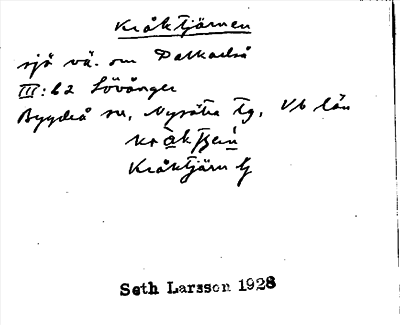 Kråktjärnen
sjö vä. om Dalkarlså
III:62 Lövånger
Bygdeå sn, Nysätra tg, Vb län
Kråktjärn G
Seth Larsson 1928